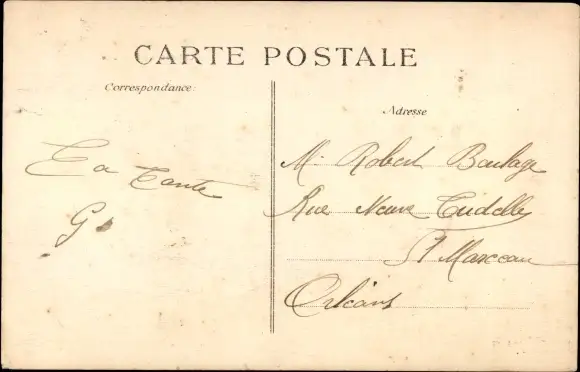 CARTE POSTALE
Correspondance:
Ta Tante
G
Adresse
M. Robert Boulage
Rue Neuve Tudelle
St Marceau
Orléans